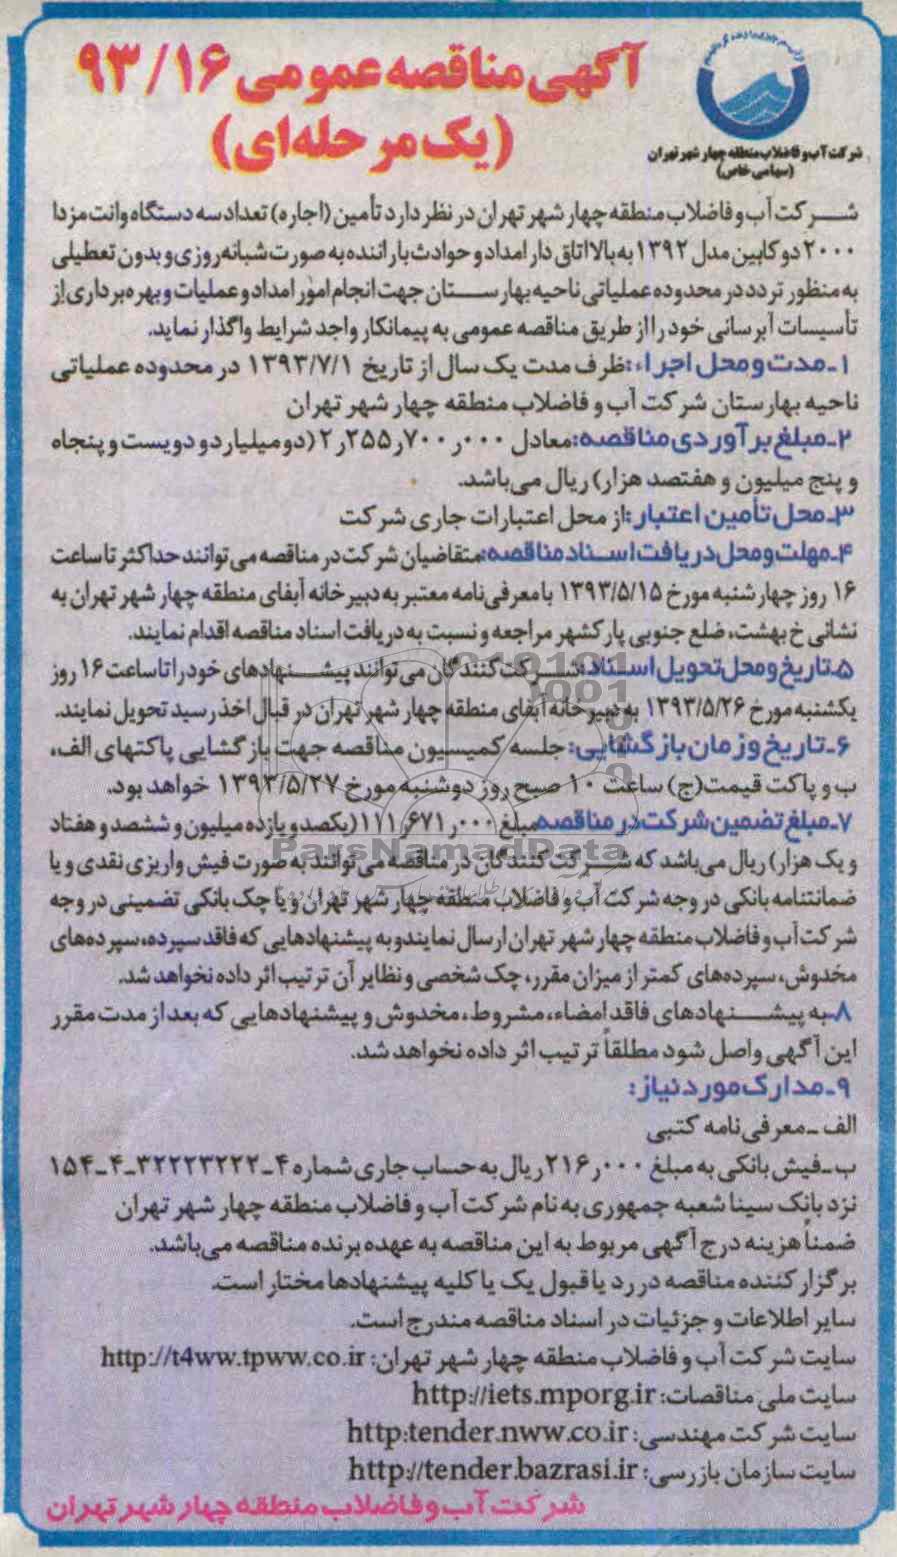 آگهی مناقصه عمومی ۹۳/۱۶
(یک مرحله‌ای)
شرکت آب و فاضلاب منطقه چهار شهر تهران
(سهامی خاص)
شرکت آب و فاضلاب منطقه چهار شهر تهران در نظر دارد تأمین (اجاره) تعداد سه دستگاه وانت مزدا
۲۰۰۰ دو کابین مدل ۱۳۹۲ به بالا اتاق دار امداد و حوادث با راننده به صورت شبانه روزی و بدون تعطیلی
به منظور تردد در محدوده عملیاتی ناحیه بهارستان جهت انجام امور امداد و عملیات و بهره برداری از
تأسیسات آبرسانی خود را از طریق مناقصه عمومی به پیمانکار واجد شرایط واگذار نماید.
۱ـ مدت و محل اجراء: ظرف مدت یک سال از تاریخ ۱۳۹۳/۷/۱ در محدوده عملیاتی
ناحیه بهارستان شرکت آب و فاضلاب منطقه چهار شهر تهران
۲ـ مبلغ برآوردی مناقصه: معادل ۲٫۲۵۵٫۷۰۰٫۰۰۰ (دو میلیارد و دویست و پنجاه
و پنج میلیون و هفتصد هزار) ریال می‌باشد.
۳ـ محل تأمین اعتبار: از محل اعتبارات جاری شرکت
۴ـ مهلت و محل دریافت اسناد مناقصه: متقاضیان شرکت در مناقصه می‌توانند حداکثر تا ساعت
۱۶ روز چهارشنبه مورخ ۱۳۹۳/۵/۱۵ با معرفی‌نامه معتبر به دبیرخانه آبفای منطقه چهار شهر تهران به
نشانی خ بهشت، ضلع جنوبی پارکشهر مراجعه و نسبت به دریافت اسناد مناقصه اقدام نمایند.
۵ـ تاریخ و محل تحویل اسناد: شرکت کنندگان می‌توانند پیشنهادهای خود را تا ساعت ۱۶ روز
یکشنبه مورخ ۱۳۹۳/۵/۲۶ به دبیرخانه آبفای منطقه چهار شهر تهران در قبال اخذ رسید تحویل نمایند.
۶ـ تاریخ و زمان بازگشایی: جلسه کمیسیون مناقصه جهت بازگشایی پاکتهای الف،
ب و پاکت قیمت(ج) ساعت ۱۰ صبح روز دوشنبه مورخ ۱۳۹۳/۵/۲۷ خواهد بود.
۷ـ مبلغ تضمین شرکت در مناقصه: مبلغ ۱۱۱٫۶۷۱٫۰۰۰ (یکصد و یازده میلیون و ششصد و هفتاد
و یک هزار) ریال می‌باشد که شرکت کنندگان در مناقصه می‌توانند به صورت فیش واریزی نقدی و یا
ضمانتنامه بانکی در وجه شرکت آب و فاضلاب منطقه چهار شهر تهران و یا چک بانکی تضمینی در وجه
شرکت آب و فاضلاب منطقه چهار شهر تهران ارسال نمایند و به پیشنهادهایی که فاقد سپرده، سپرده‌های
مخدوش، سپرده‌های کمتر از میزان مقرر، چک شخصی و نظایر آن ترتیب اثر داده نخواهد شد.
۸ـ به پیشنهادهای فاقد امضاء، مشروط، مخدوش و پیشنهادهایی که بعد از مدت مقرر
این آگهی واصل شود مطلقاً ترتیب اثر داده نخواهد شد.
۹ـ مدارک مورد نیاز:
الف ـ معرفی‌نامه کتبی
ب ـ فیش بانکی به مبلغ ۲۱۶٫۰۰۰ ریال به حساب جاری شماره ۴ـ۳۲۲۲۳۲۲۲ـ۴ـ۱۵۴
نزد بانک سینا شعبه جمهوری به نام شرکت آب و فاضلاب منطقه چهار شهر تهران
ضمناً هزینه درج آگهی مربوط به این مناقصه به عهده برنده مناقصه می‌باشد.
برگزار کننده مناقصه در رد یا قبول یک یا کلیه پیشنهادها مختار است.
سایر اطلاعات و جزئیات در اسناد مناقصه مندرج است.
سایت شرکت آب و فاضلاب منطقه چهار شهر تهران: http://t4ww.tpww.co.ir
سایت ملی مناقصات: http://iets.mporg.ir
سایت شرکت مهندسی: http:tender.nww.co.ir
سایت سازمان بازرسی: http://tender.bazrasi.ir
شرکت آب و فاضلاب منطقه چهار شهر تهران
ParsNamadData